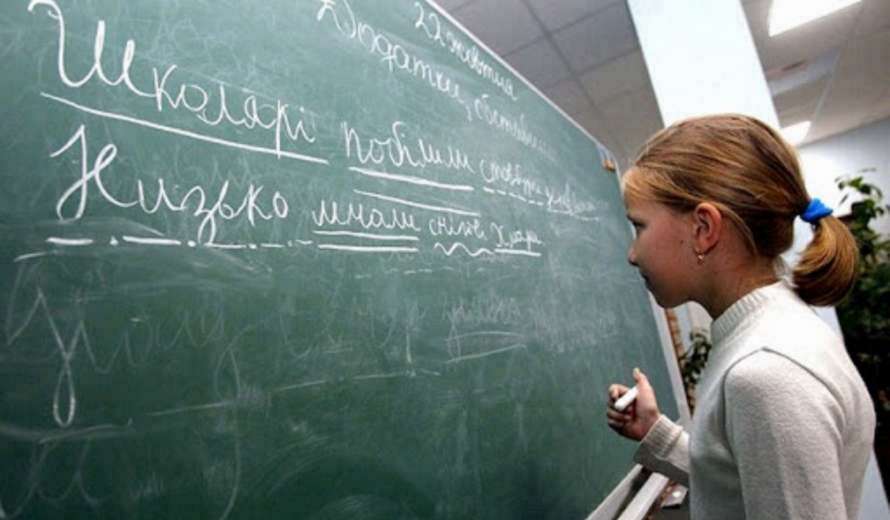 22 жовтня
Додатки, обставини
Школярі побілили стовбури
Низько мчали снігові хмари